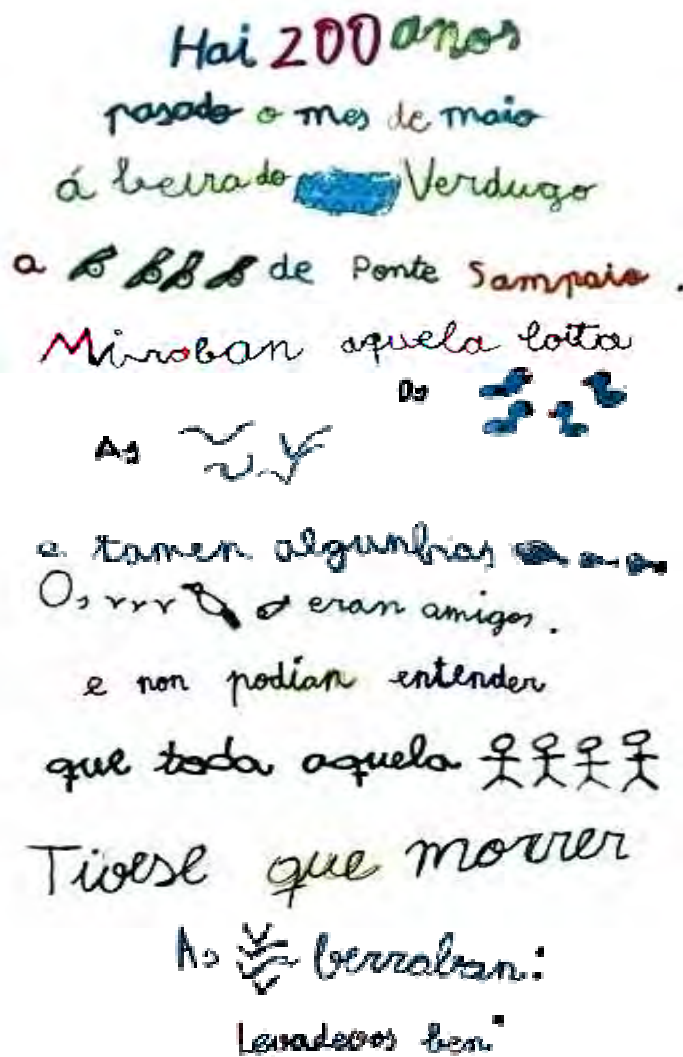 Hai 200 anos
pasado o mes de maio
á beira do Verdugo
a de Ponte Sampaio.
Miraban aquela loita
Os
As
e tamen algunhas
Os eran amigos.
e non podían entender
que toda aquela
Tivese que morrer
As berraban:
Levadevos ben"